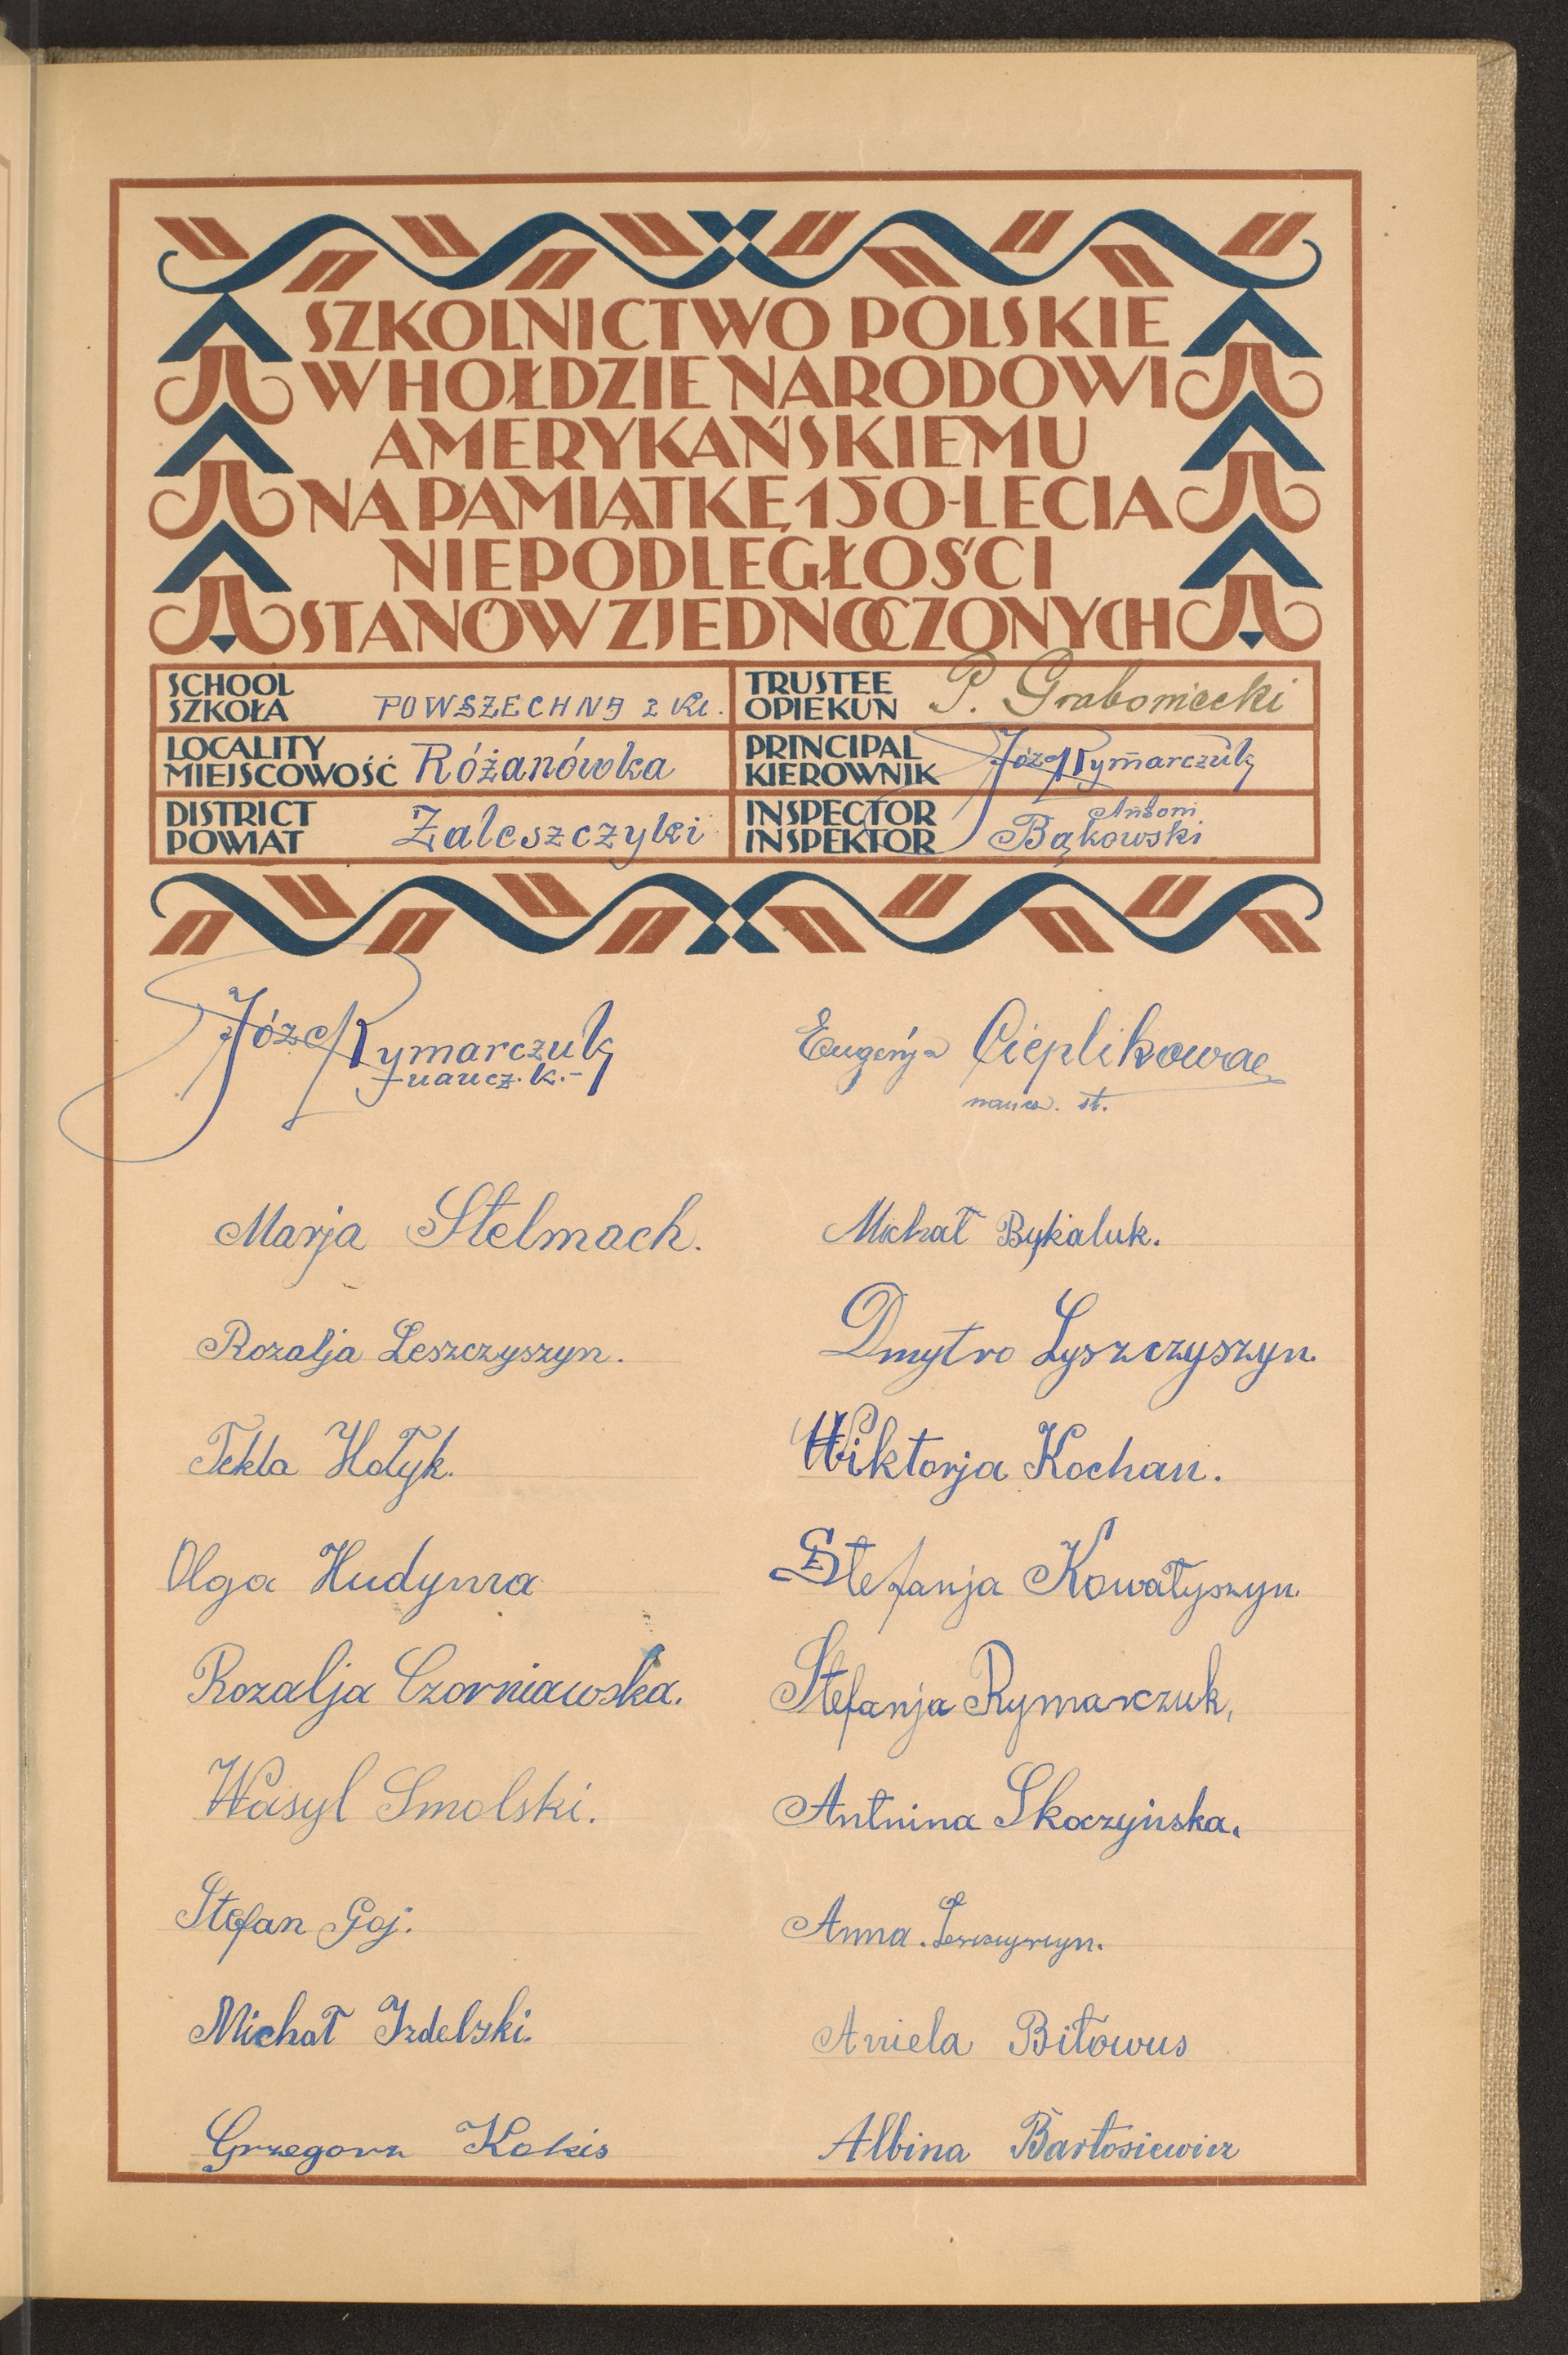 SZKOLNICTWO POLSKIE
W HOŁDZIE NARODOWI
AMERYKAŃSKIEMU
NA PAMIĄTKĘ 150-LECIA
NIEPODLEGŁOŚCI
STANÓW ZJEDNOCZONYCH
SCHOOL
SZKOŁA POWSZECHNA 2 Kl.
TRUSTEE
OPIEKUN P. Graboniecki
LOCALITY
MIEJSCOWOŚĆ Różanówka
PRINCIPAL
KIEROWNIK Józef Rymarczuk
DISTRICT
POWIAT Zaleszczyki
INSPECTOR Antoni
INSPEKTOR Bąkowski
Józef Rymarczuk
naucz. k.-
Eugenja Cieplikowa
naucz. st.
Marja Stelmach.
Michał Bykaluk.
Rozalja Leszczyszyn.
Dmytro Lyszczyszyn.
Tekla Hołyk.
Wiktorja Kochan.
Olga Hudyma
Stefanja Kowałyszyn.
Rozalja Czorniawska.
Stefanja Rymarczuk,
Wasyl Smolski.
Antnina Skoczyńska.
Stefan Goj.
Anna. Leszczyszyn.
Michał Izdelski.
Aniela Biłowus
Grzegorz Kokis
Albina Bartosiewicz